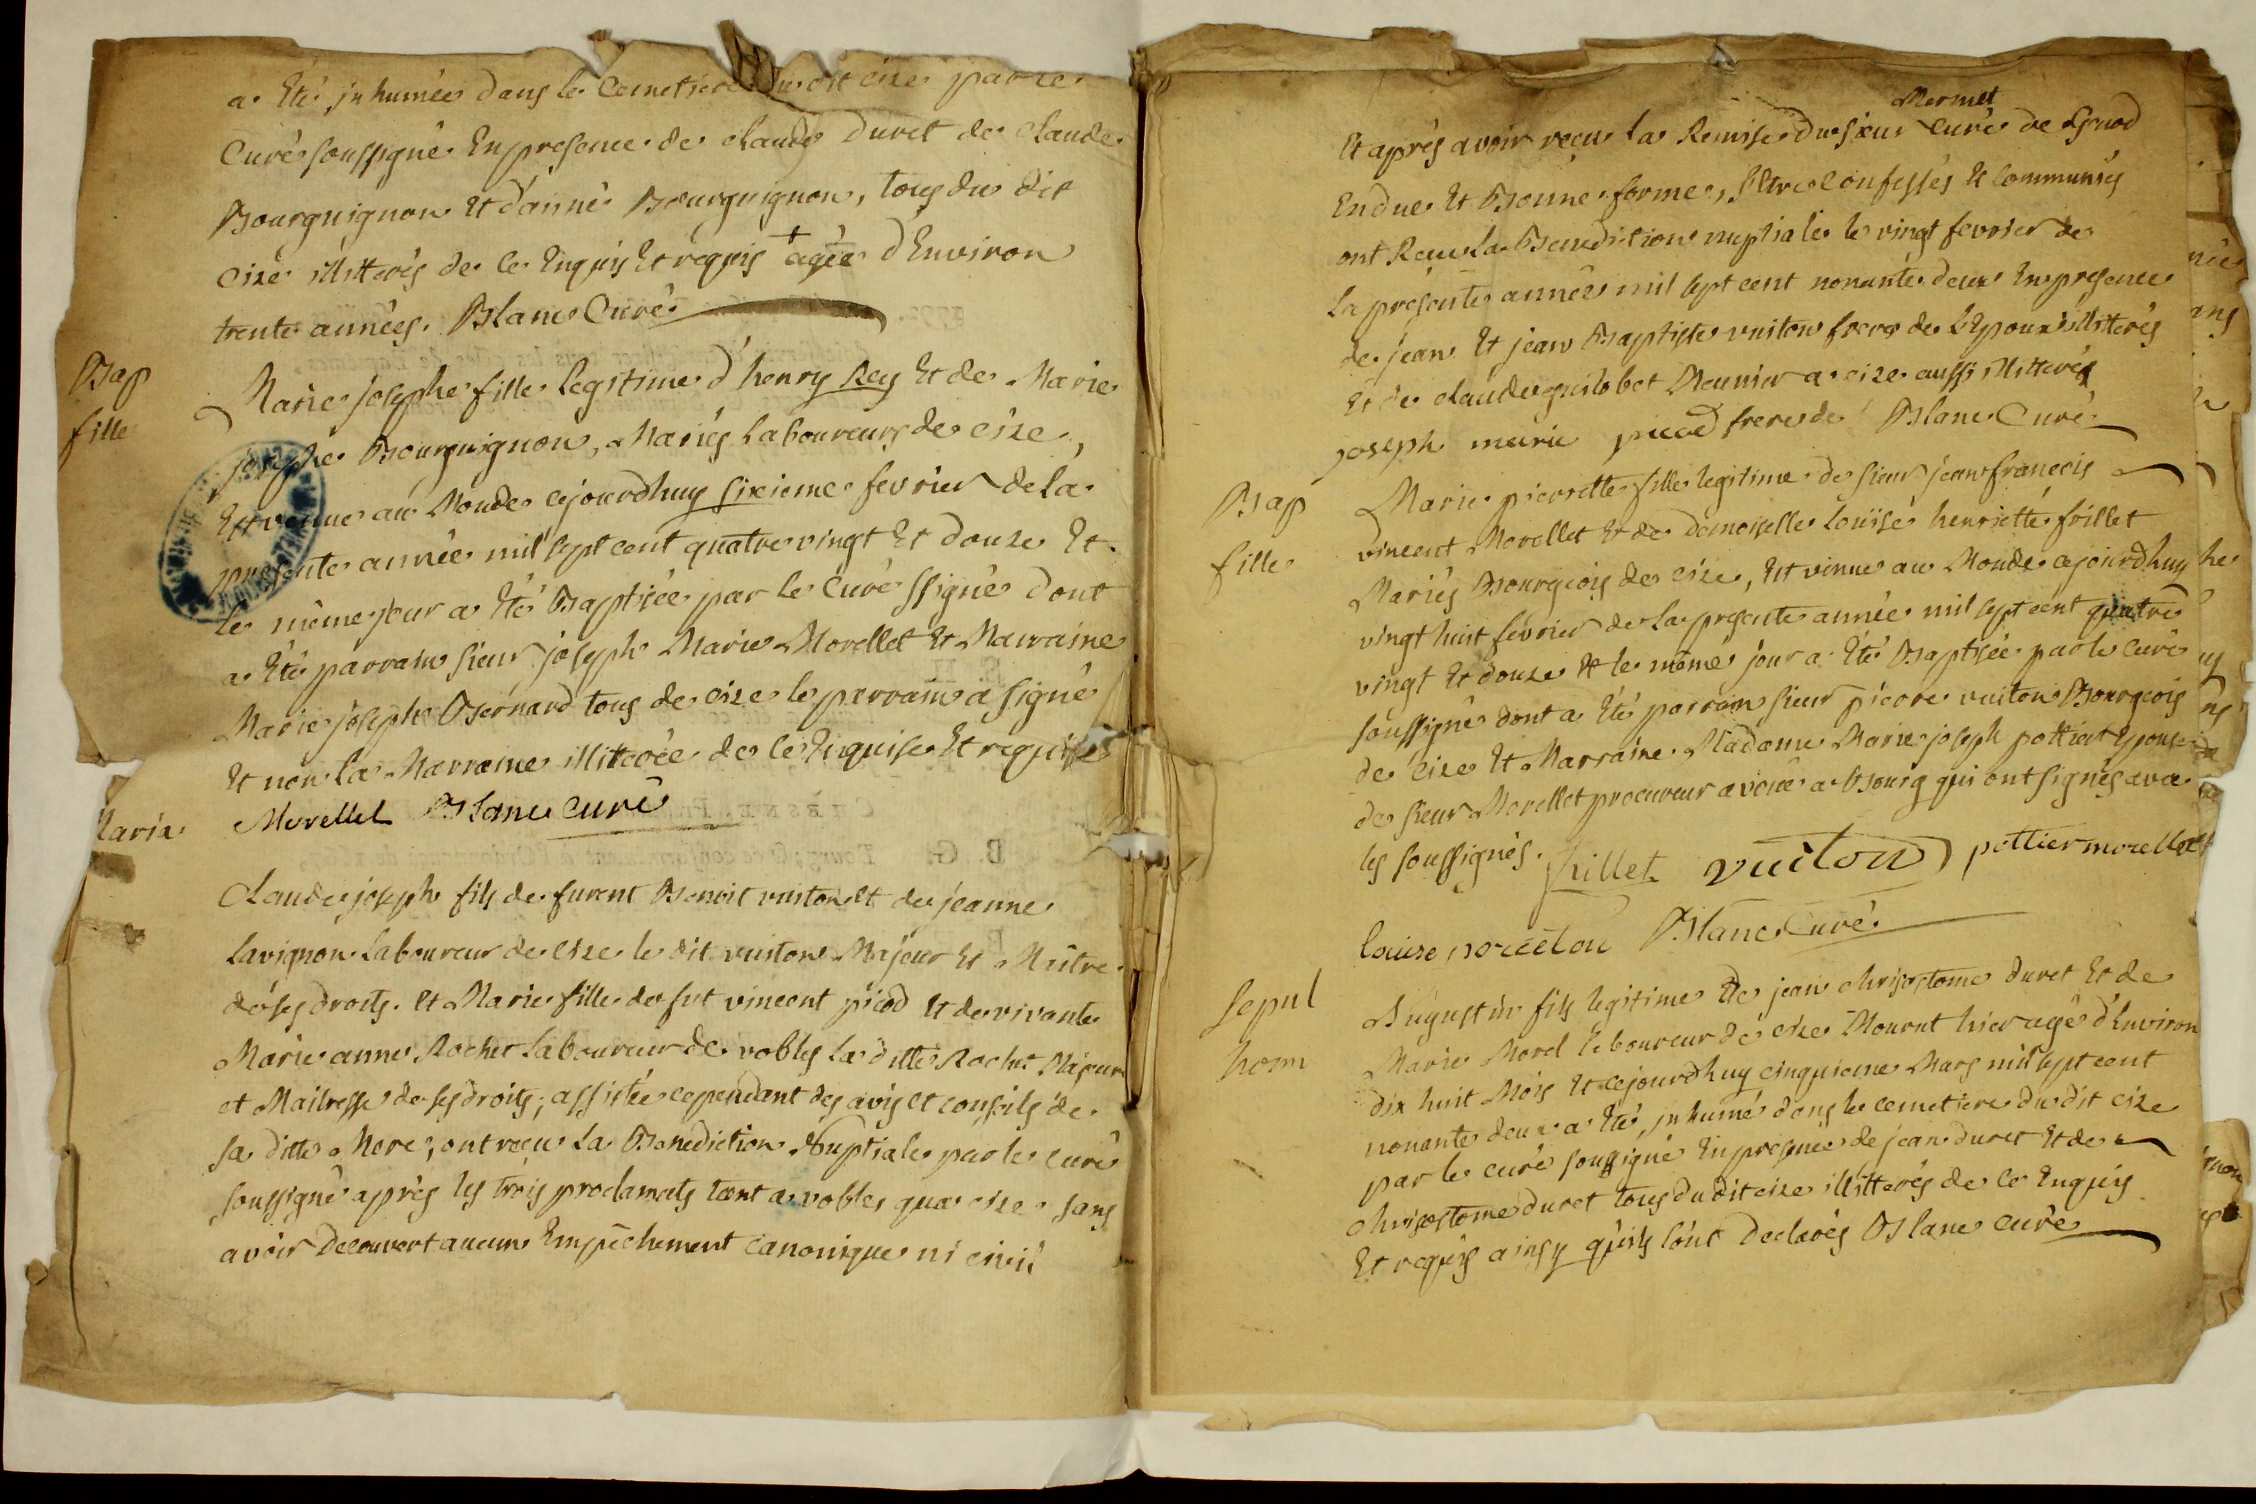 a Eté inhumée dans le Cemetiere du dit cize par le
Curé soussigné En presence de claude duret de claude
Bourguignon Et d'aimé Bourguignon, tous du dit
cize illitterés de ce Enquis Et requis + agée d'Environ
trente années. Blanc Curé
Bap
fille
Marie josephe fille legitime d'henry Rey Et de Marie
josephe Bourguignon, Mariés Laboureurs de cize,
Est venue au Monde cejourdhuy sixieme fevrier de la
presente année mil sept cent quatre vingt Et douze Et
le même jour a Eté Baptisée par le Curé ssigné dont
a Eté parrain sieur joseph Marie Morellet Et Marraine
Marie josephe Bernard tous de cize le parrain a signé
Et non la Marraine illiterée de ce Enquise Et requise
Morellet Blanc curé
Maria
Claude joseph fils de furent Benoit vuiton Et de jeanne
Lavignon Laboureur de cize le dit vuiton Majeur Et Maitre
de ses droits. Et Marie fille de fut vincent picod Et de vivante
Marie anne Rochet Laboureur de vobles la ditte Rochet Majeure
et Maitresse de ses droits; assistée cependant des avis et conseils de
sa ditte Mere; ont reçu la Benediction Nuptiale par le curé
soussigné après les trois proclamats tant a vobles qua cize sans
avoir decouvert aucun Empêchement canonique ni civil
Mermet
Et après avoir reçu la Remise du sieur curé de Gruod
En due Et Bonne forme, s'Etre confessés Et Communiés
ont Recu la Benediction nuptiale le vingt fevrier de
la presente année mil sept cent nonante deux En presence
de jean Et jean Baptiste vuiton freres de l'Epoux illiterés
Et de claude guilobet Meunier a cize aussi illitterés
joseph marie picod frere de Blanc Curé
Bap
fille
Marie pierrette fille legitime de sieur jean francois
vincent Morellet Et de demoiselle Loüise henriette frillet
Mariés Bourgeois de cize, Est venue au Monde cejourdhuy
vingt huit fevrier de la presente année mil sept cent quatre
vingt Et douze Et le même jour a Eté Baptisée par le Curé
soussigné dont a Eté parrain sieur pierre vuiton Bourgeois
de cize Et Marraine Madame Marie joseph pottier Epouse
de sieur Morellet procureur avoué a Bourg qui ont signés avec
les soussignés. frillet vuiton pottier morellet
louise Blanc Curé
Sepul
hom
Augustin fils legitime de jean chrisostome duret Et de
Marie Morel Laboureur de cize Mourut hier agé d'Environ
dix huit Mois Et cejourdhuy cinquieme Mars mil sept cent
nonante deux a Eté inhumé dans le cemetiere du dit cize
par le curé soussigné En presence de jean duret Et de
chrisostome duret tous du dit cize illitterés de ce Enquis
Et requis ainsy qu'ils l'ont declarés Blanc curé